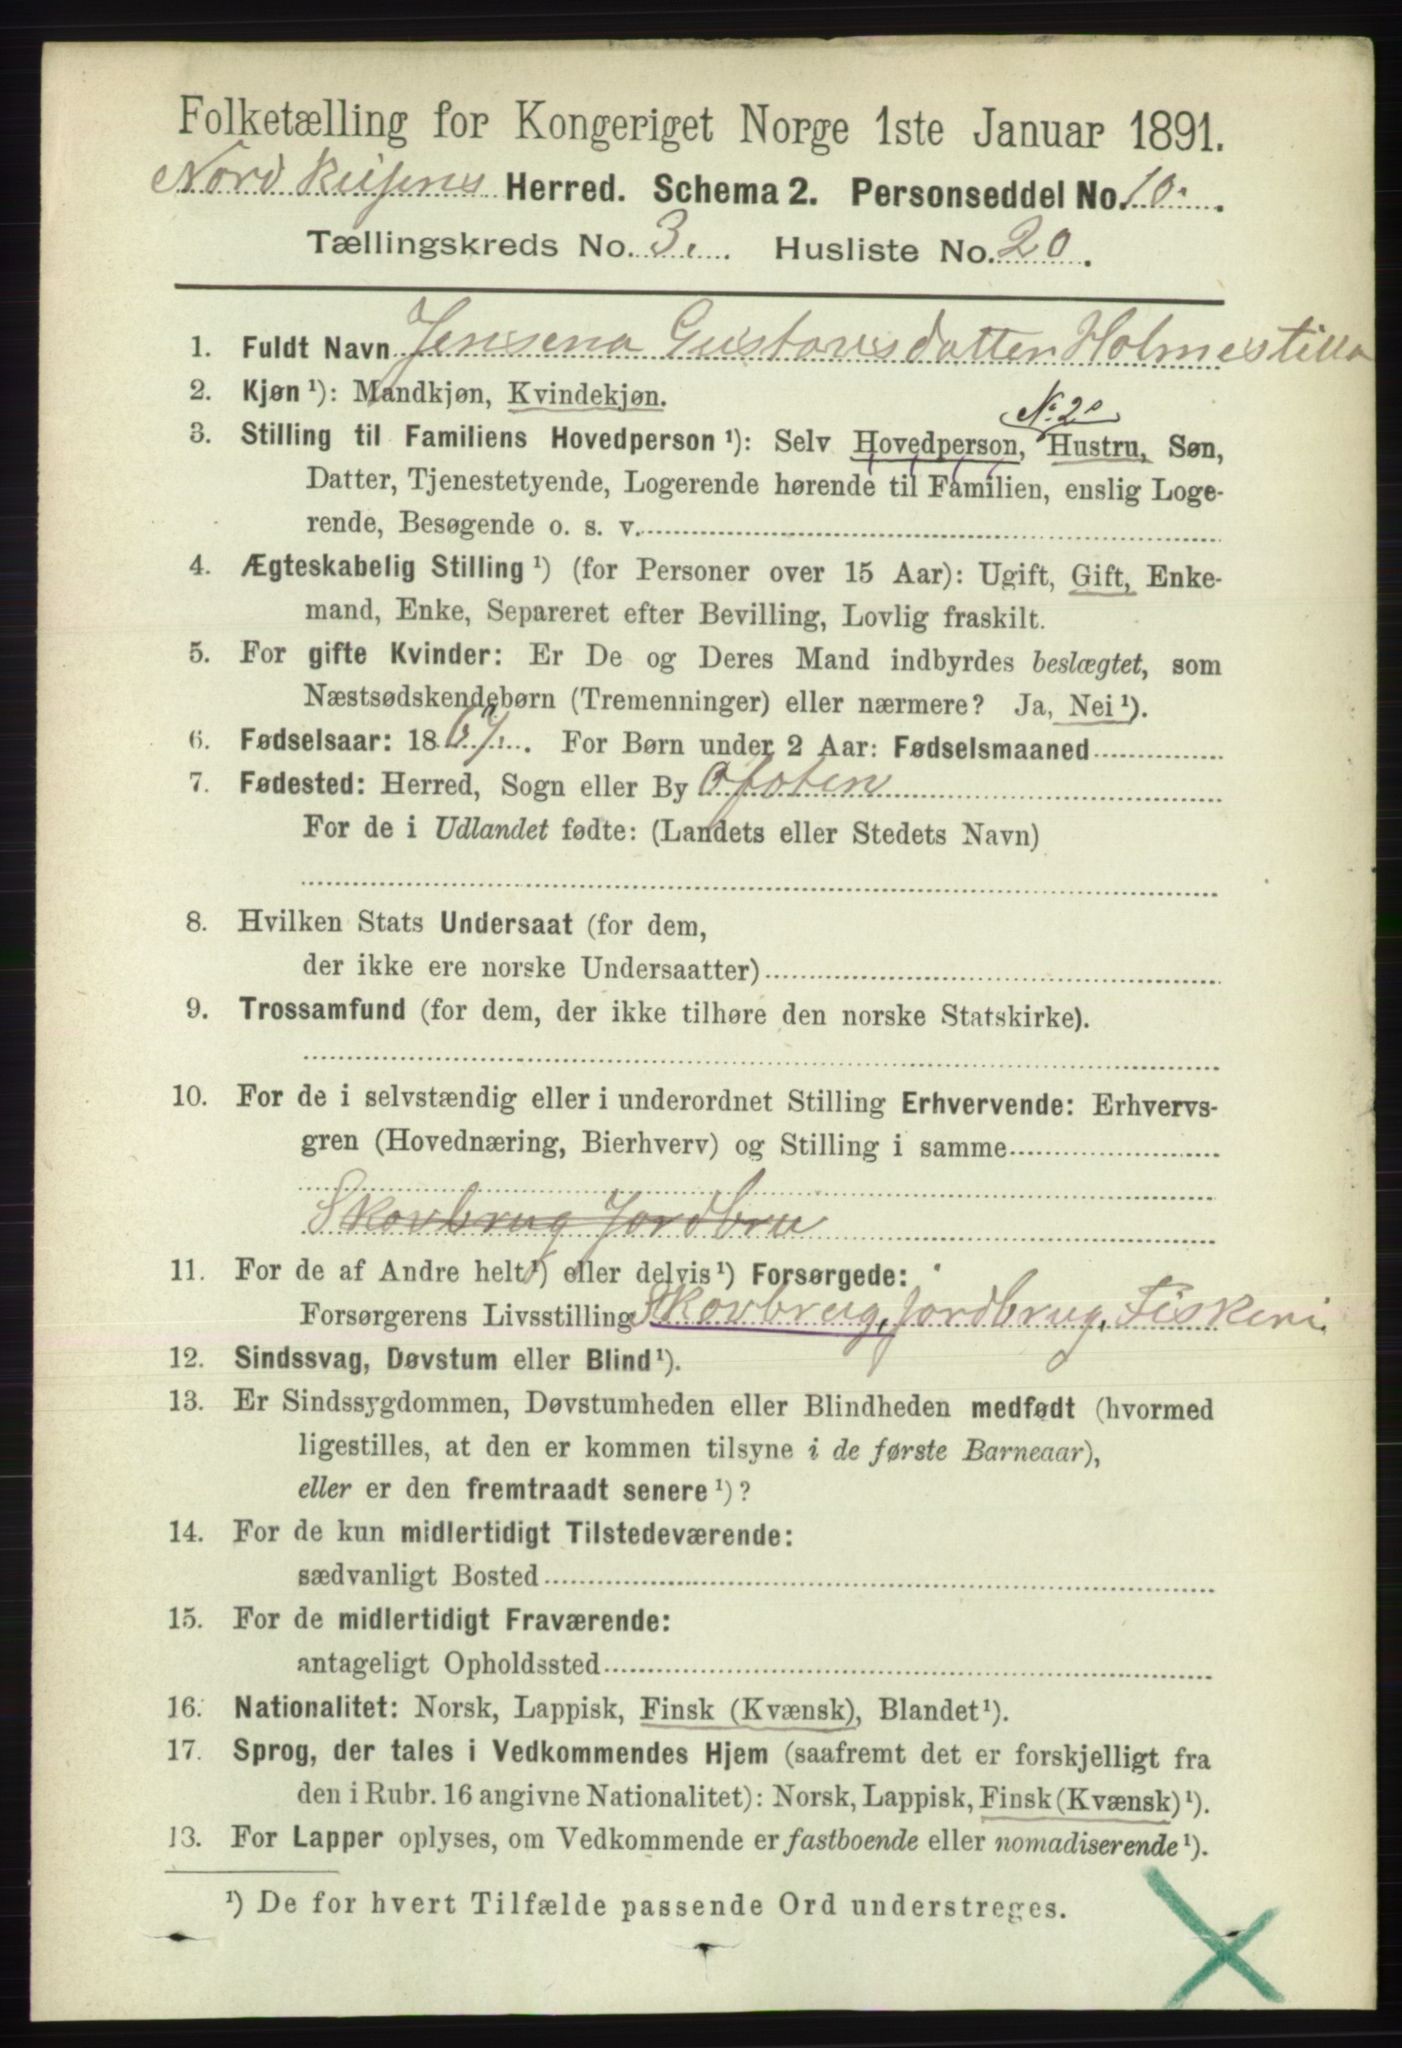 Folketælling for Kongeriget Norge 1ste Januar 1891.
Nordreisens Herred. Schema 2. Personseddel No. 10.
Tællingskreds No. 3. Husliste No. 20.
1. Fuldt Navn Jensena Gustavsdatter Holmestilla
2. Kjøn ¹): Mandkjøn, Kvindekjøn.
No 2
3. Stilling til Familiens Hovedperson ¹): Selv Hovedperson, Hustru, Søn,
Datter, Tjenestetyende, Logerende hørende til Familien, enslig Loge-
rende, Besøgende o. s. v.
4. Ægteskabelig Stilling ¹) (for Personer over 15 Aar): Ugift, Gift, Enke-
mand, Enke, Separeret efter Bevilling, Lovlig fraskilt.
5. For gifte Kvinder: Er De og Deres Mand indbyrdes beslægtet, som
Næstsødskendebørn (Tremenninger) eller nærmere? Ja, Nei ¹).
6. Fødselsaar: 1867. For Børn under 2 Aar: Fødselsmaaned
7. Fødested: Herred, Sogn eller By Ofoten
For de i Udlandet fødte: (Landets eller Stedets Navn)
8. Hvilken Stats Undersaat (for dem,
der ikke ere norske Undersaatter)
9. Trossamfund (for dem, der ikke tilhøre den norske Statskirke).
10. For de i selvstændig eller i underordnet Stilling Erhvervende: Erhvervs-
gren (Hovednæring, Bierhverv) og Stilling i samme
Skovbrug Jordbru
11. For de af Andre helt ¹) eller delvis ¹) Forsørgede:
Forsørgerens Livsstilling Skovbrug, Jordbrug, Fiskeri.
12. Sindssvag, Døvstum eller Blind ¹).
13. Er Sindssygdommen, Døvstumheden eller Blindheden medfødt (hvormed
ligestilles, at den er kommen tilsyne i de første Barneaar),
eller er den fremtraadt senere ¹)?
14. For de kun midlertidigt Tilstedeværende:
sædvanligt Bosted
15. For de midlertidigt Fraværende:
antageligt Opholdssted
16. Nationalitet: Norsk, Lappisk, Finsk (Kvænsk), Blandet ¹).
17. Sprog, der tales i Vedkommendes Hjem (saafremt det er forskjelligt fra
den i Rubr. 16 angivne Nationalitet): Norsk, Lappisk, Finsk (Kvænsk) ¹).
13. For Lapper oplyses, om Vedkommende er fastboende eller nomadiserende ¹).
¹) De for hvert Tilfælde passende Ord understreges.